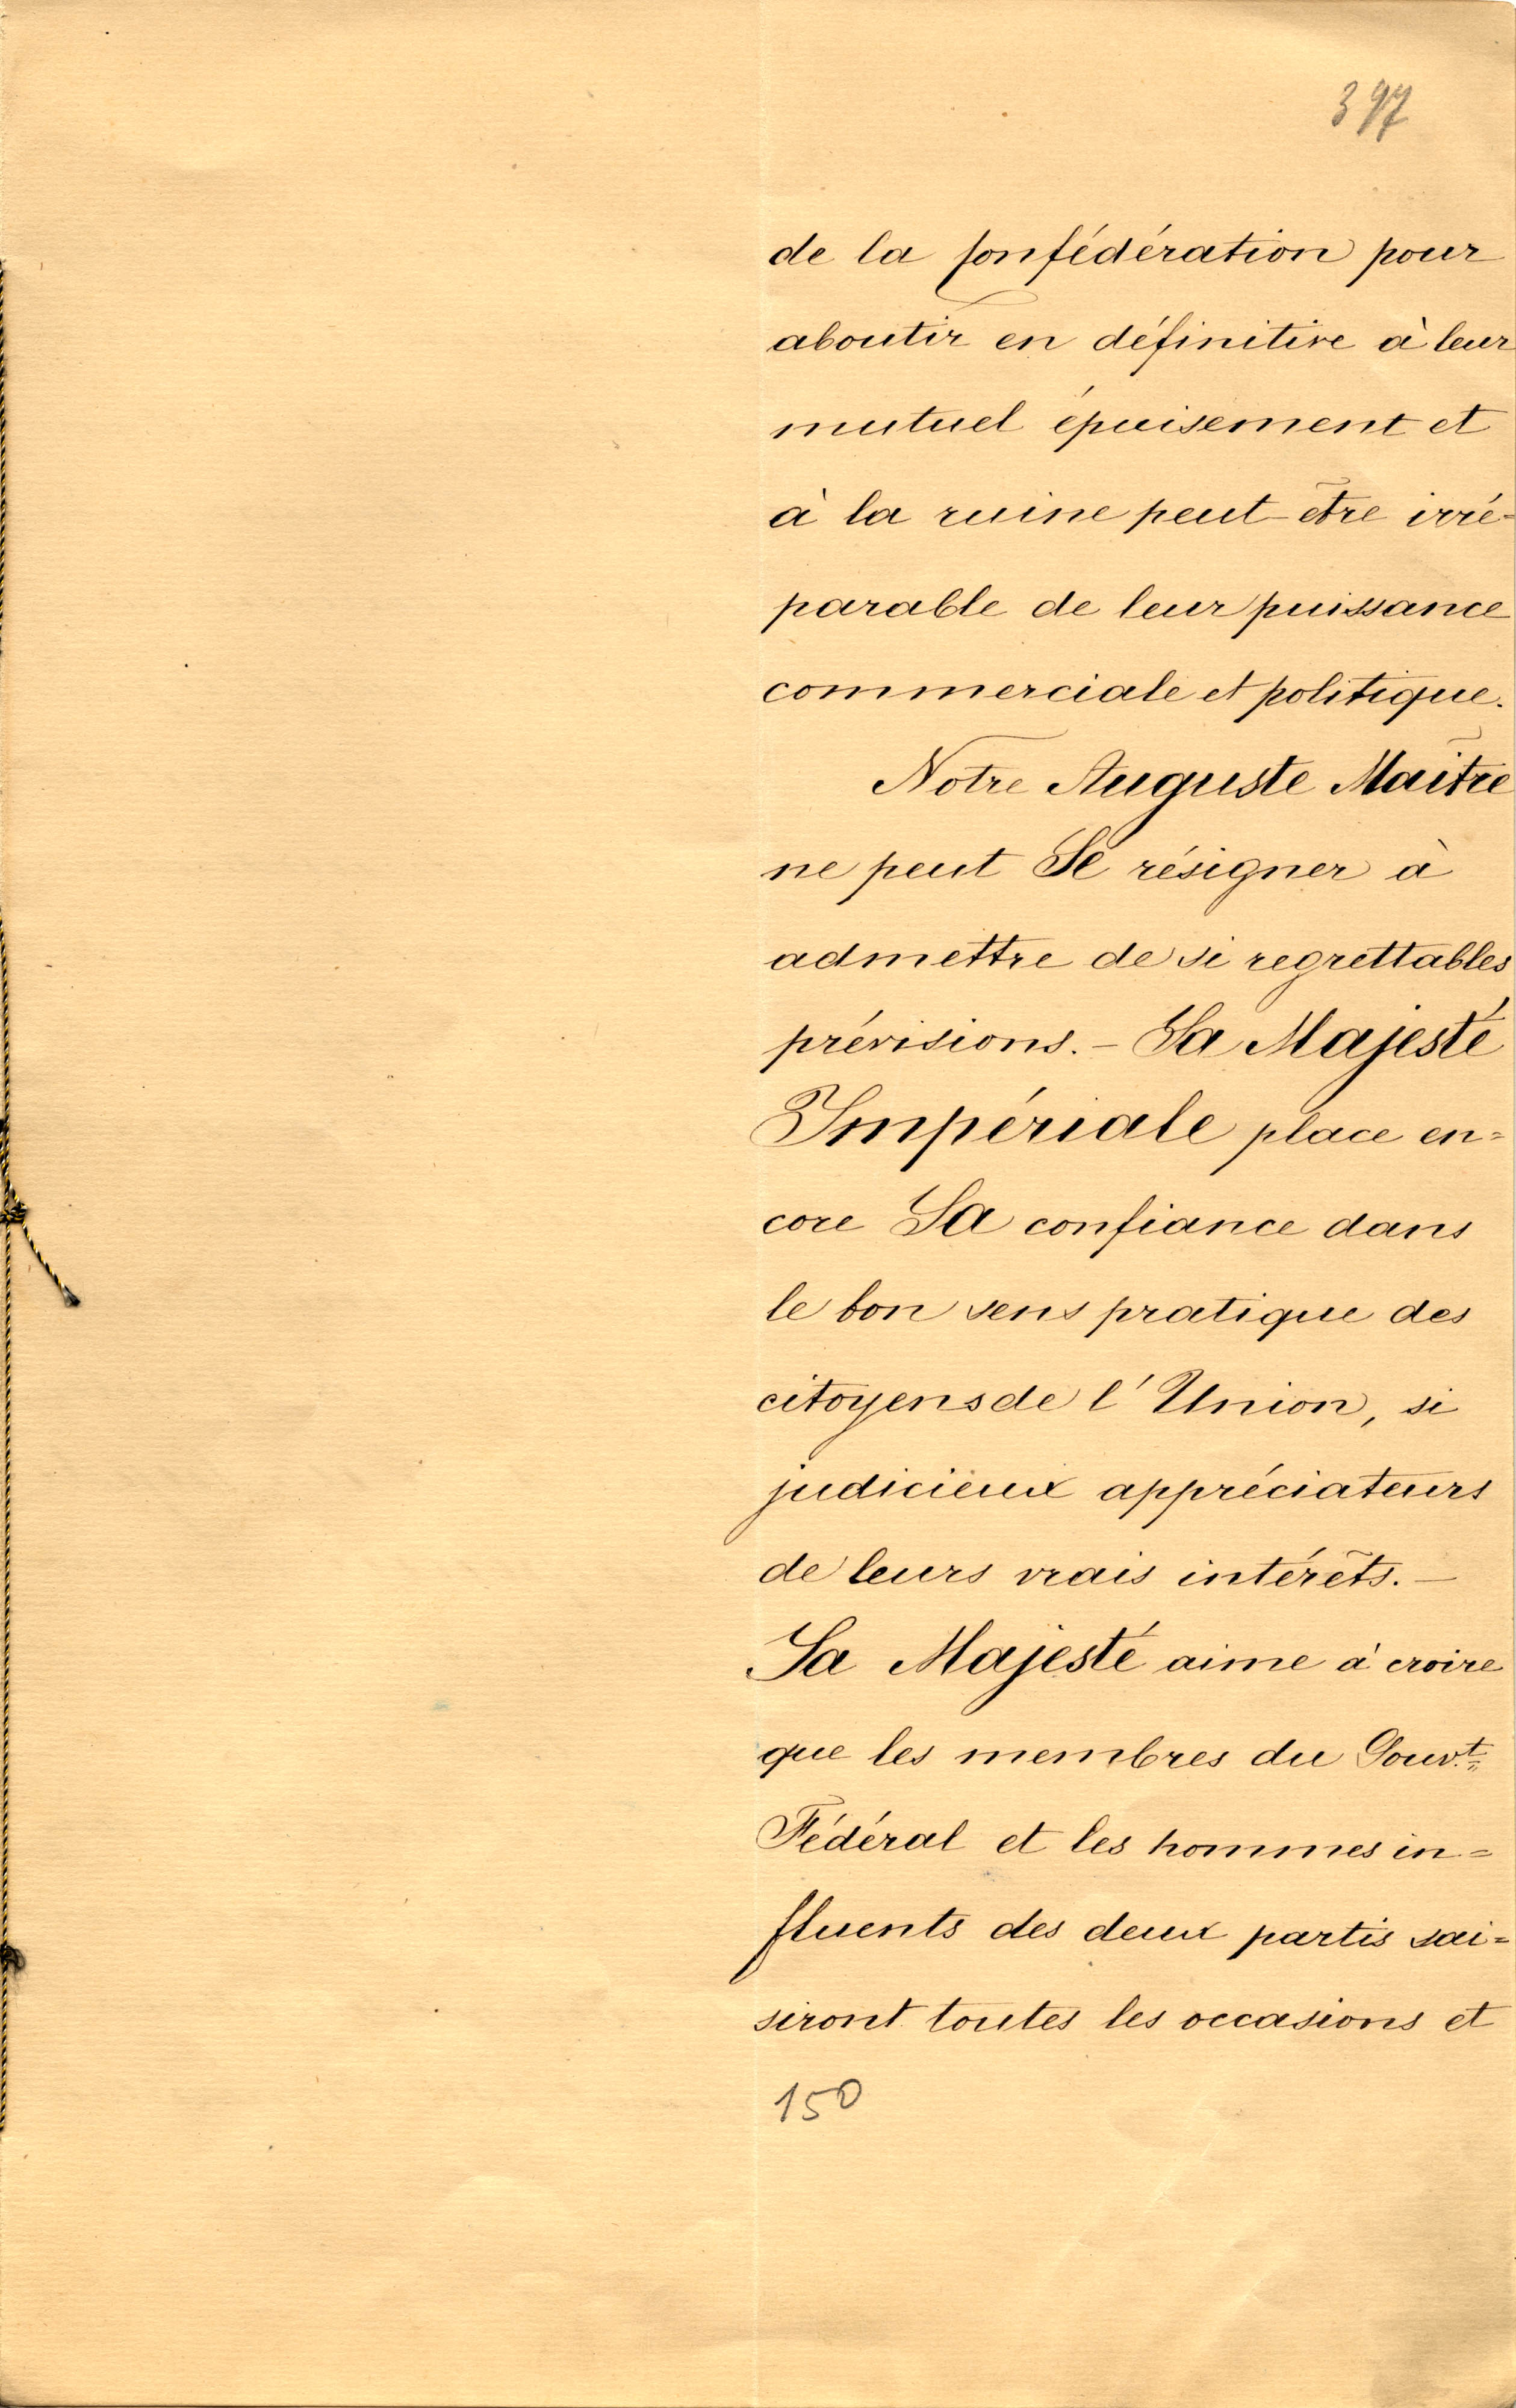 397
de la Confédération pour
aboutir en définitive à leur
mutuel épuisement et
à la ruine peut-être irré=
parable de leur puissance
commerciale et politique.
Notre Auguste Maître
ne peut Se résigner à
admettre de si regrettables
prévisions. – Sa Majesté
Impériale place en=
core Sa confiance dans
le bon sens pratique des
citoyens de l'Union, si
judicieux appréciateurs
de leurs vrais intérêts. –
Sa Majesté aime à croire
que les membres du Gouvt.
Fédéral et les hommes in=
fluents des deux partis sai=
siront toutes les occasions et
150